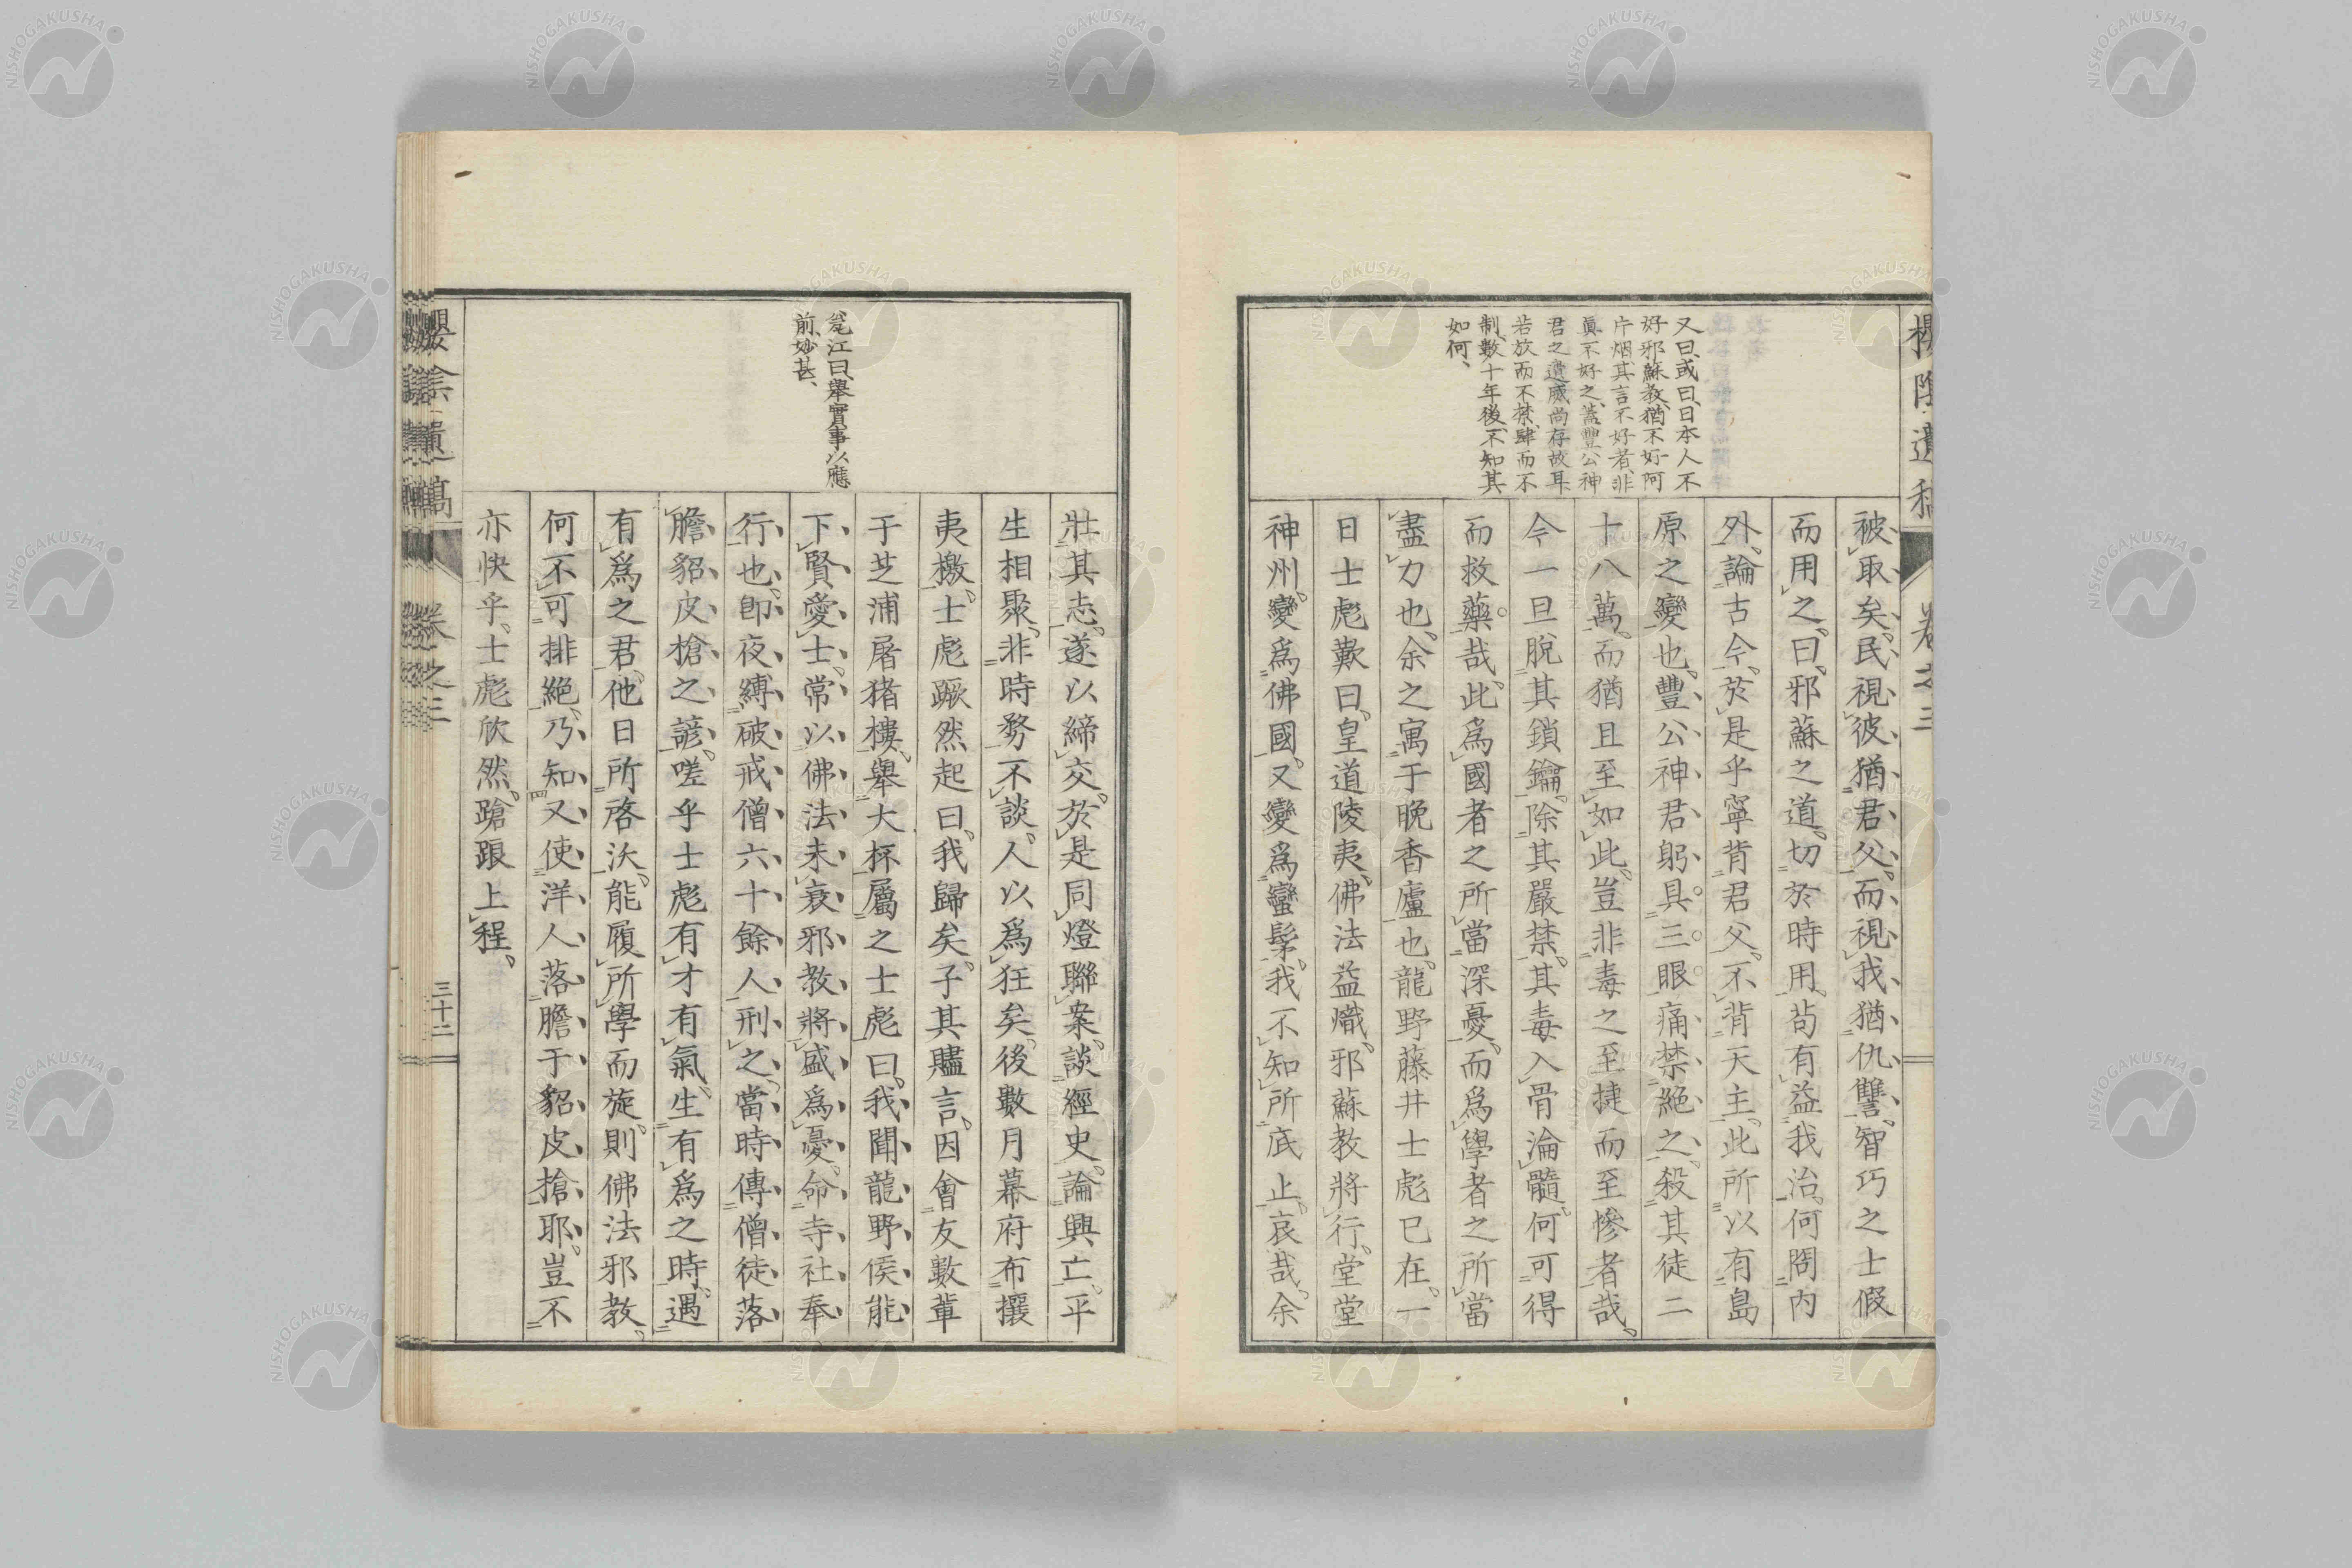 櫻陰遺稿
卷之三
又曰、或曰、日本人不
好邪蘇教、猶不好阿
片烟、其言不好者、非
眞不好之、蓋豐公神
君之遺威尚存故耳、
若放而不禁、肆而不
制、數十年後、不知其
如何、
被取矣、民視彼猶君父、而視我猶仇讐、智巧之士假
而用之、曰、邪蘇之道、切於時用、苟有益我治、何問内
外、論古今、於是乎寧背君父、不背天主、此所以有島
原之變也、豐公神君、躬具三眼、痛禁絶之、殺其徒二
十八萬、而猶且至如此、豈非毒之至捷而至慘者哉、
今一旦脱其鎖鑰、除其嚴禁、其毒入骨淪髓、何可得
而救藥哉、此爲國者之所當深憂、而爲學者之所當
盡力也、余之寓于晩香廬也、龍野藤井士彪已在、一
日士彪歎曰、皇道陵夷、佛法益熾、邪蘇教將行、堂堂
神州、變爲佛國、又變爲蠻髳、我不知所底止、哀哉、余
壯其志、遂以締交、於是同燈聯案、談經史、論興亡、平
生相聚、非時務不談、人以爲狂矣、後數月幕府布攘
夷檄、士彪蹶然起曰、我歸矣、子其贐言、因會友數輩
于芝浦屠猪樓、舉大杯屬之士彪曰、我聞龍野侯能
下賢愛士、常以佛法未衰、邪教將盛爲憂、命寺社奉
行也、即夜縛破戒僧六十餘人刑之、當時傳僧徒落
膽貂皮槍之諺、嗟乎士彪有才有氣、生有爲之時、遇
有爲之君、他日所啓沃、能履所學而旋、則佛法邪教、
何不可排絶、乃知又使洋人落膽于貂皮搶耶、豈不
亦快乎、士彪欣然、蹌踉上程、
毙江曰、舉實事以應
前、妙甚、
櫻陰遺稿
卷之三
三十二